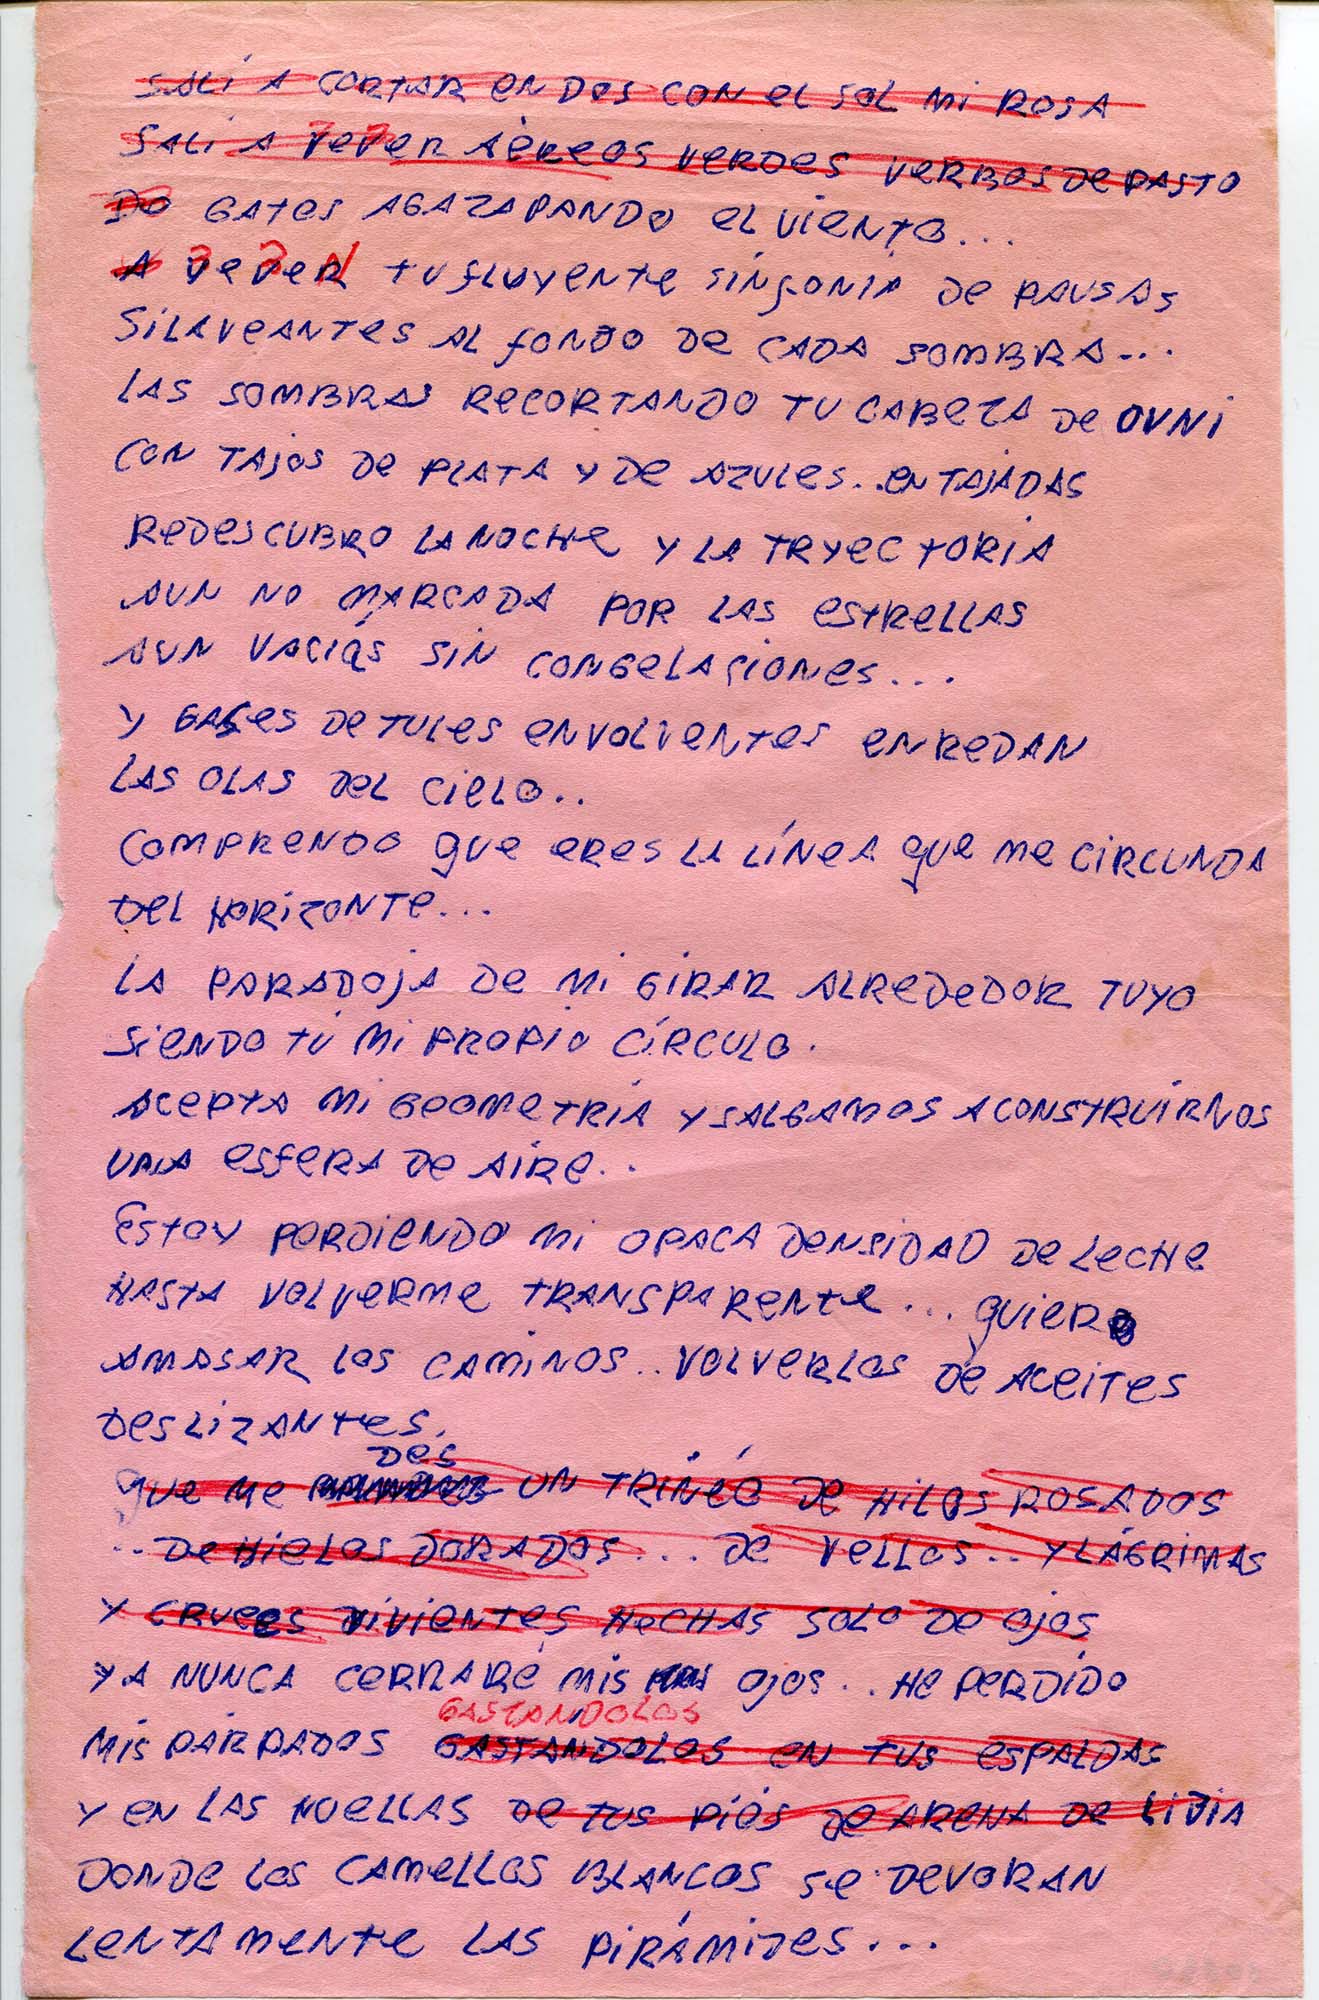 SALÍ A CORTAR EN DOS CON EL SOL MI ROSA
SALÍ A BEBER AÉREOS VERDES VERBOS DE PASTO
DO GATES AGAZAPANDO EL VIENTO...
A BEBER TU FLUYENTE SINFONIA DE PAUSAS
SILAVEANTES AL FONDO DE CADA SOMBRA...
LAS SOMBRAS RECORTANDO TU CABEZA DE OVNI
CON TAJOS DE PLATA Y DE AZULES.. EN TAJADAS
REDESCUBRO LA NOCHE Y LA TRYECTORIA
AUN NO MARCADA POR LAS ESTRELLAS
AUN VACIAS SIN CONGELACIONES...
Y GASES DE TULES ENVOLVENTES ENREDAN
LAS OLAS DEL CIELO..
COMPRENDO QUE ERES LA LÍNEA QUE ME CIRCUNDA
DEL HORIZONTE...
LA PARADOJA DE MI GIRAR ALREDEDOR TUYO
SIENDO TÚ MI PROPIO CÍRCULO.
ACEPTA MI GEOMETRÍA Y SALGAMOS A CONSTRUIRNOS
UNA ESFERA DE AIRE..
ESTOY PERDIENDO MI OPACA DENSIDAD DE LECHE
HASTA VOLVERME TRANSPARENTE... QUIERO
AMASAR LOS CAMINOS.. VOLVERLOS DE ACEITES
DESLIZANTES.
DES
QUE ME UN TRINEO DE HILOS ROSADOS
.. DE HIELOS DORADOS... DE VELLOS.. Y LÁGRIMAS
Y CRUCES VIVIENTES HECHAS SOLO DE OJOS
YA NUNCA CERRARÉ MIS OJOS.. HE PERDIDO
GASTANDOLOS
MIS PÁRPADOS GASTANDOLOS EN TUS ESPALDAS
Y EN LAS HUELLAS DE TUS PIES DE ARENA DE LIBIA
DONDE LOS CAMELLOS BLANCOS SE DEVORAN
LENTAMENTE LAS PIRÁMIDES...